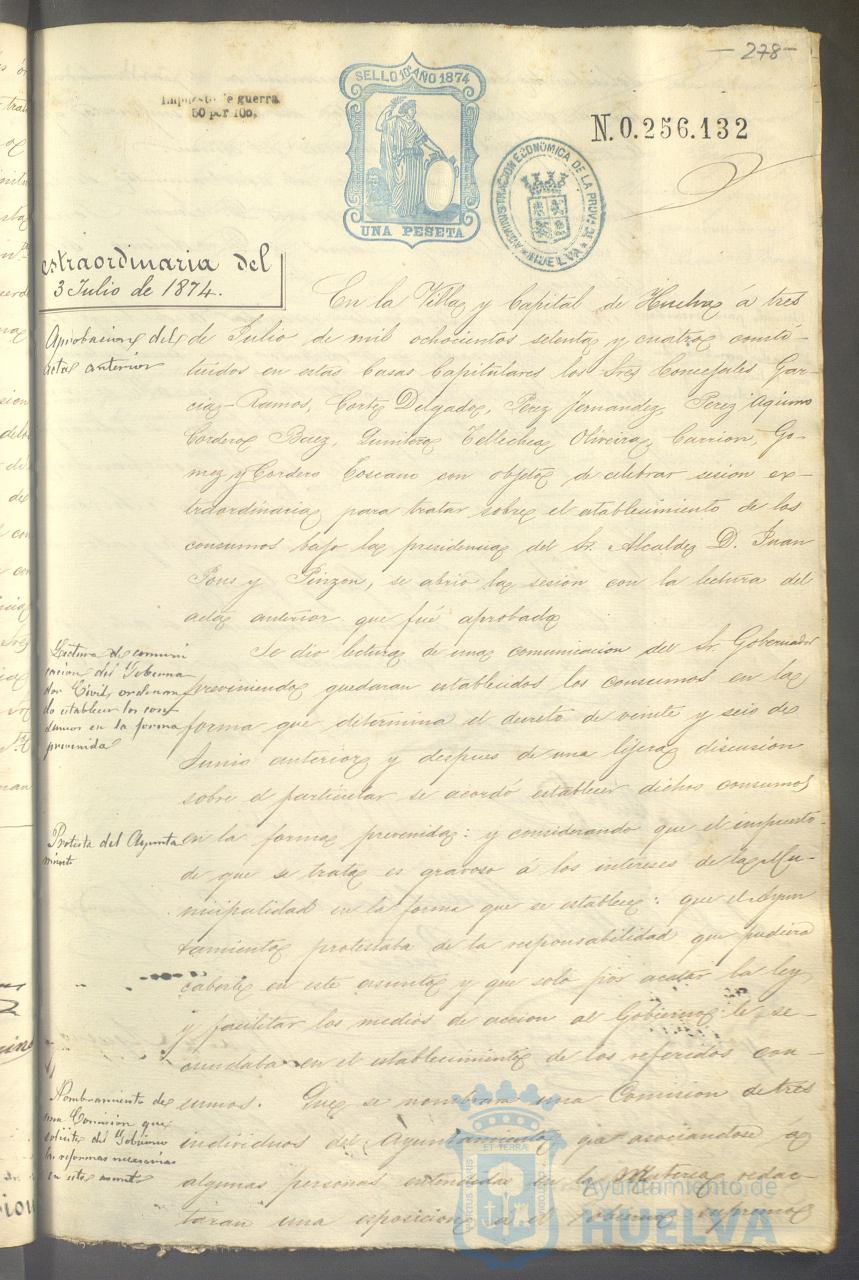 - 278 -
SELLO 10º AÑO 1874
Impuesto de guerra
50 por 100.
UNA PESETA
N. 0.256.132
ADMINISTRACION ECONOMICA DE LA PROVA DE HUELVA
estraordinaria del
3 Julio de 1874.
Aprobacion del
acta anterior
En la Villa y Capital de Huelva á tres
de Julio de mil ochocientos setenta y cuatro consti-
tuidos en estas Casas Capitulares los Sres Concejales Gar-
cia Ramos, Corte Delgado, Perez Fernandez, Perez Aquino
Cordero Baez, Dumitero Tellechea, Oliveira, Carrion, Go-
mez y Cordero Toscano con objeto de celebrar sesion ex-
traordinaria para tratar sobre el establecimiento de los
consumos bajo la presidencia del Sr. Alcalde D. Juan
Pons y Pinzon, se abrio la sesion con la lectura del
acta anterior que fué aprobada
Lectura de comuni
cacion del Goberna
dor Civil, ordenan
do establecer los con
sumos en la forma
prevenida
Se dio lectura de una comunicacion del Sr. Gobernador
previniendo quedaran establecidos los consumos en la
forma que determina el decreto de veinte y seis de
Junio anterior y despues de una lijera discusion
sobre el particular se acordó establecer dichos consumos
Protesta del Ayunta
miento
en la forma prevenida: y considerando que el impuesto
de que se trata es gravoso á los intereses de la Mu-
nicipalidad en la forma que se establece: que el Ayun
tamiento protestaba de la responsabilidad que pudiera
caberle en este asunto y que solo por acatar la ley
y facilitar los medios de accion al Gobierno le se-
cundaba en el establecimiento de los referidos con-
Nombramiento de
una Comision que
solicite del Gobierno
las reformas necesarias
en este asunto
sumos. Que se nombrara una Comision de tres
individuos del Ayuntamiento que asociandose a
algunas personas entendidas en la Materia redac-
taran una esposicion a el gobierno supremo
ET TERRA
Ayuntamiento de
HUELVA